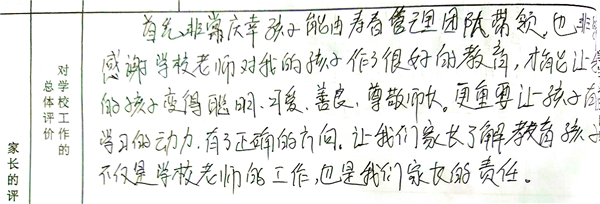 家长的评
对学校工作的
总体评价
首先非常庆幸孩子能由春春管理团队带领,也非
感谢学校老师对我的孩子作了很好的教育,才能让
的孩子变得聪明、可爱、善良、尊敬师长。更重要让孩子有
学习的动力,有了正确的方向。让我们家长了解教育孩子
不仅是学校老师的工作,也是我们家长的责任。